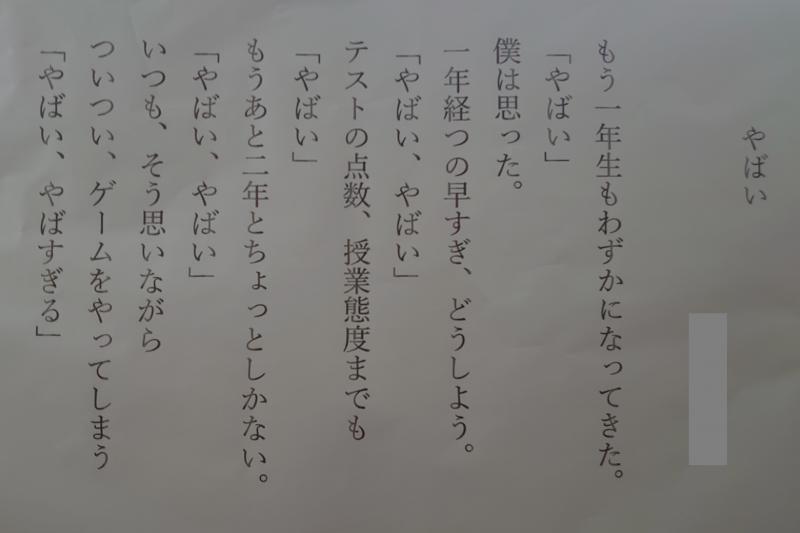 やばい
もう一年生もわずかになってきた。
「やばい」
僕は思った。
一年経つの早すぎ、どうしよう。
「やばい、やばい」
テストの点数、授業態度までも
「やばい」
もうあと二年とちょっとしかない。
「やばい、やばい」
いつも、そう思いながら
ついつい、ゲームをやってしまう
「やばい、やばすぎる」